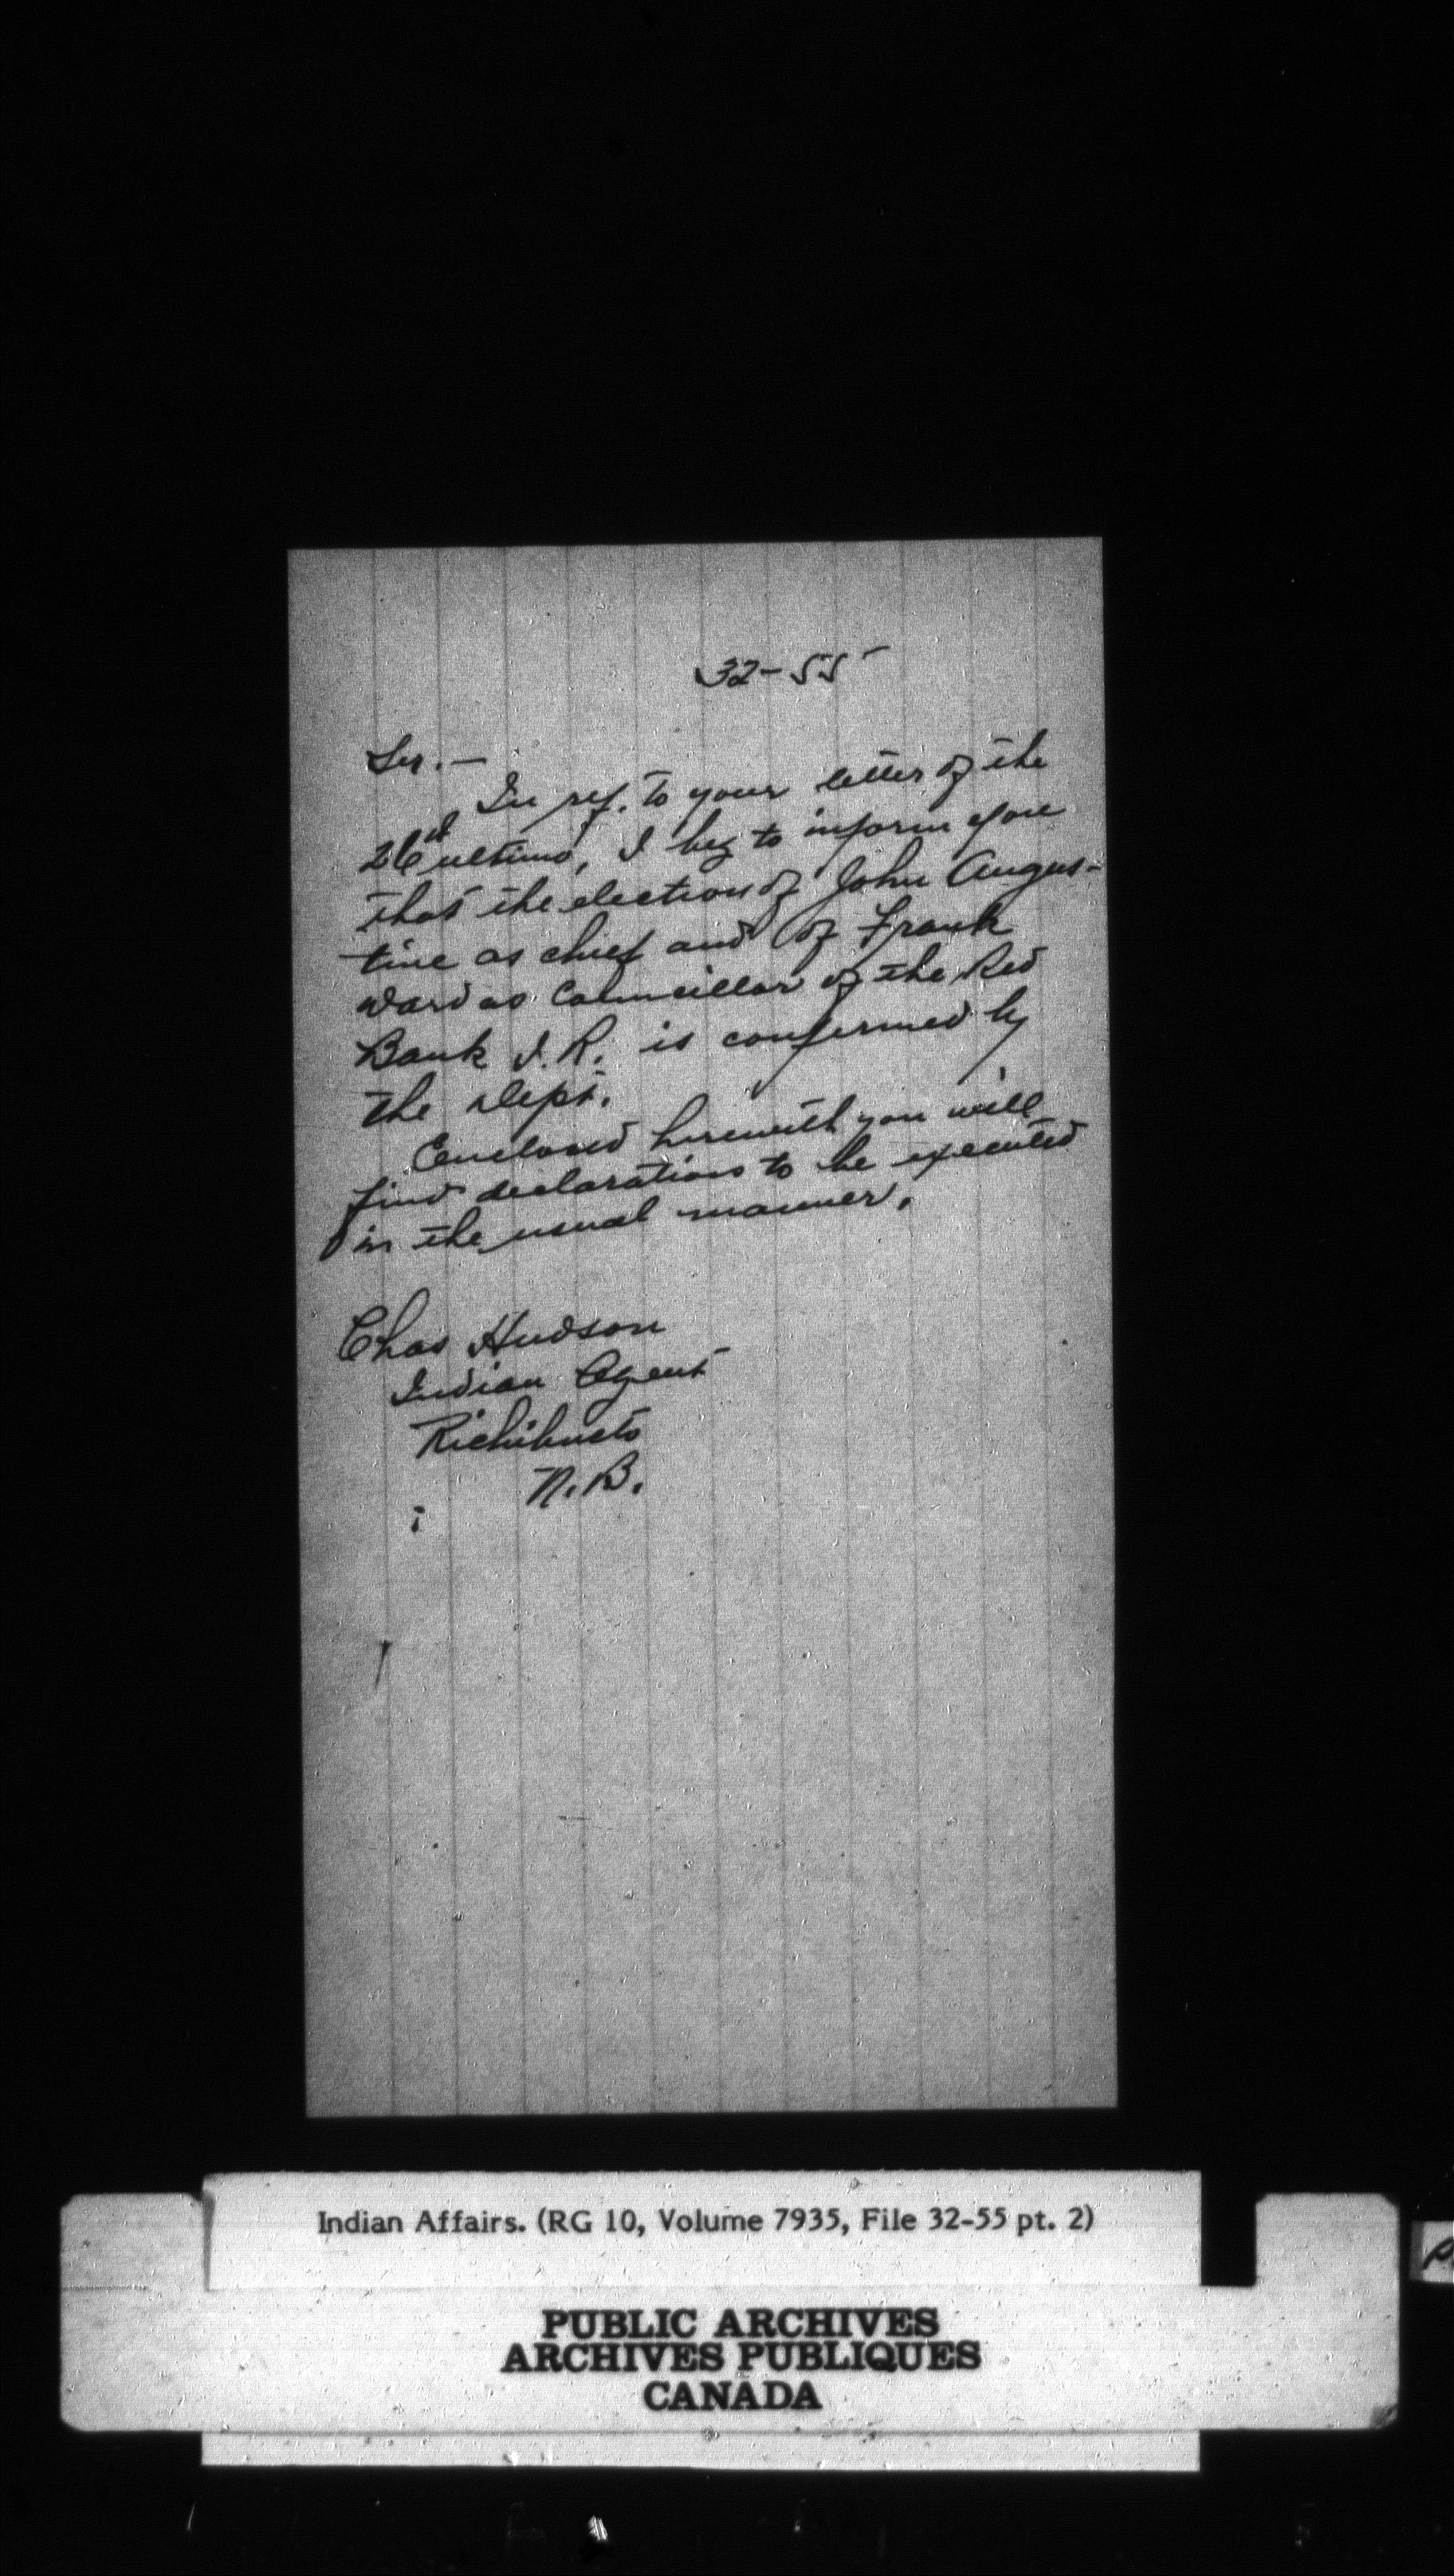 32-55
Sir.—
In ref. to your letter of the
26th ultimo, I beg to inform you
that the election of John Augus-
tine as chief and of Frank
Ward as Councillor of the Red
Bank I.R. is confirmed by
the Dept.
Enclosed herewith you will
find declarations to be executed
in the usual manner.
Chas Hudson
Indian Agent
Richibucto
N.B.
Indian Affairs. (RG 10, Volume 7935, File 32-55 pt. 2)
PUBLIC ARCHIVES
ARCHIVES PUBLIQUES
CANADA